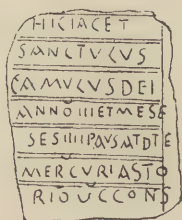 HICIACET
SANCTVLVS
FAMVLVSDEI
ANNOIIIETMESE
SESIIIIPAVSATDTE
MERCVRIASTO
RIOVCCONS